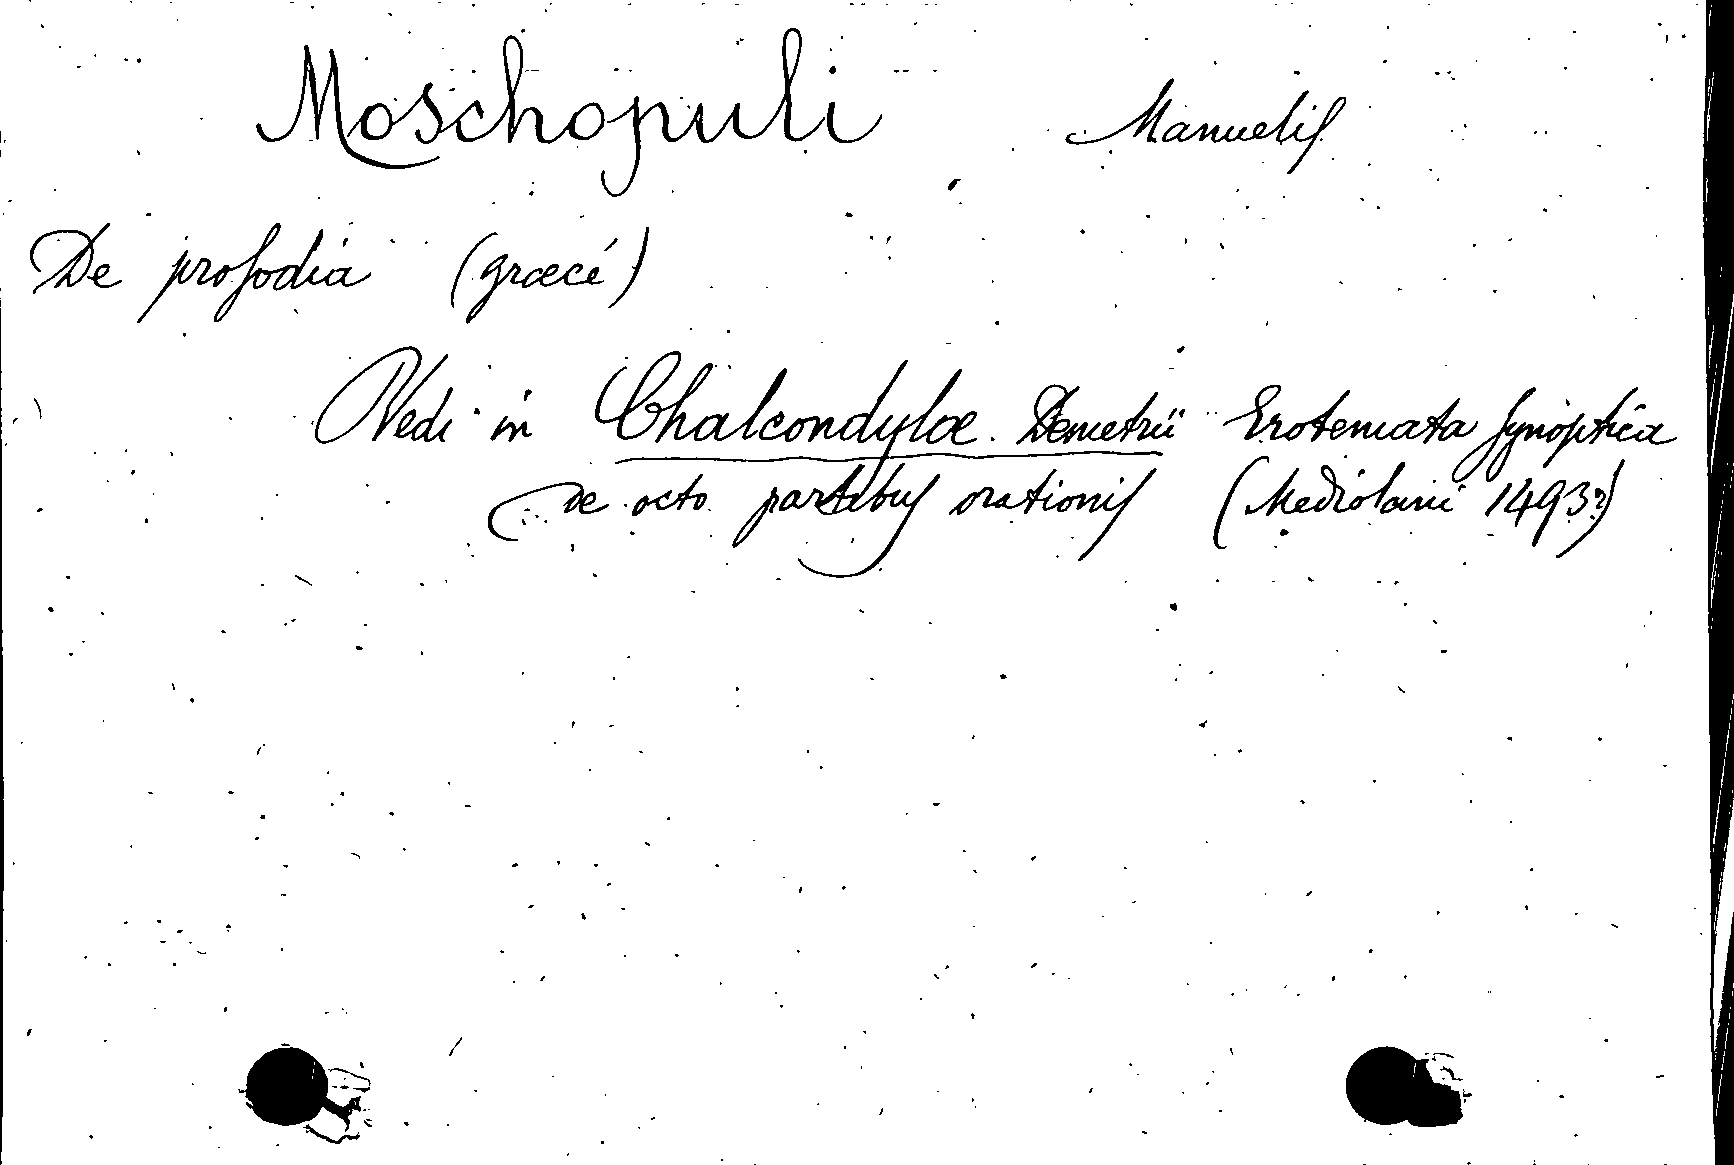 Moschopuli Manuelis
De prosodia (græcé)
Vedi in Chalcondylæ Demetrii Erotemata synoptica
de octo partibus orationis (Mediolani 1493?)